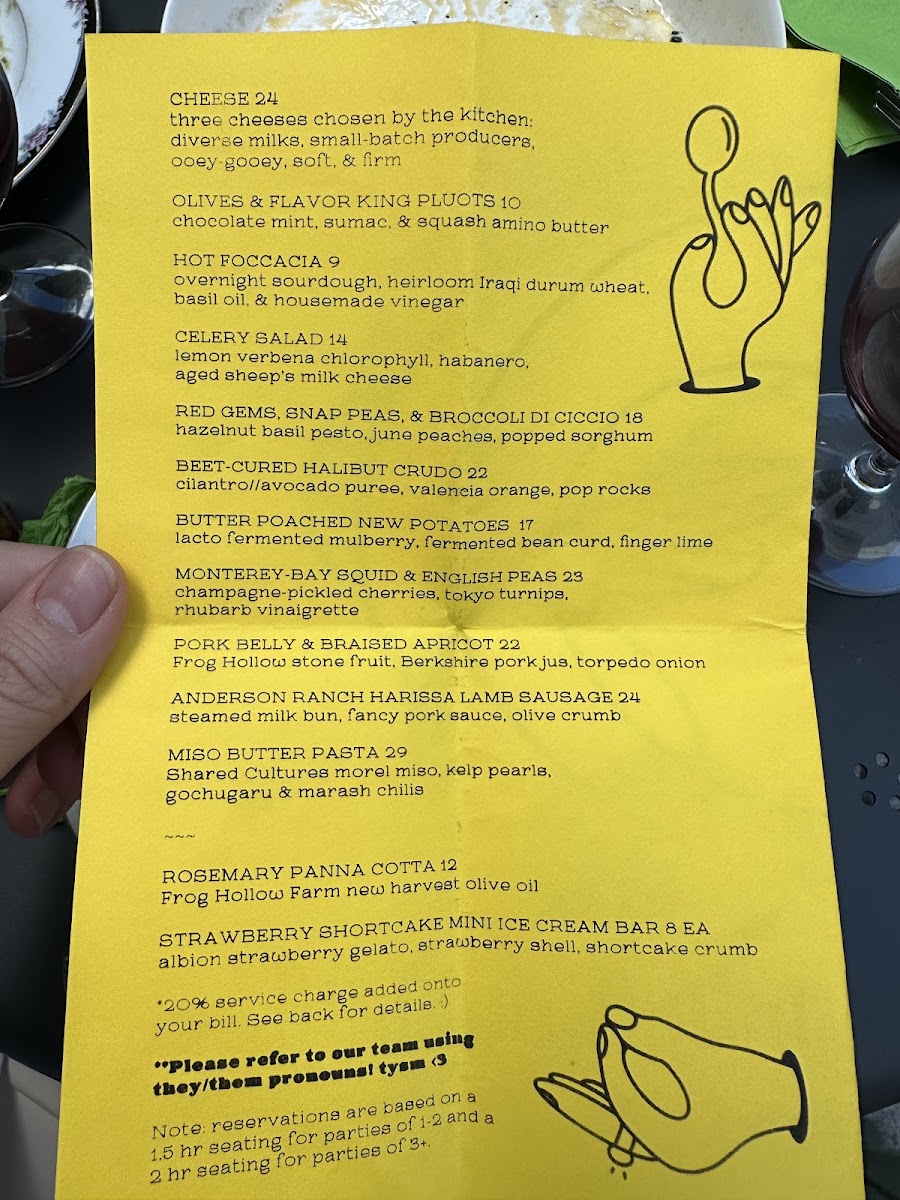 CHEESE 24
three cheeses chosen by the kitchen:
diverse milks, small-batch producers,
ooey-gooey, soft, & firm
OLIVES & FLAVOR KING PLUOTS 10
chocolate mint, sumac, & squash amino butter
HOT FOCCACIA 9
overnight sourdough, heirloom Iraqi durum wheat,
basil oil, & housemade vinegar
CELERY SALAD 14
lemon verbena chlorophyll, habanero,
aged sheep's milk cheese
RED GEMS, SNAP PEAS, & BROCCOLI DI CICCIO 18
hazelnut basil pesto, june peaches, popped sorghum
BEET-CURED HALIBUT CRUDO 22
cilantro//avocado puree, valencia orange, pop rocks
BUTTER POACHED NEW POTATOES 17
lacto fermented mulberry, fermented bean curd, finger lime
MONTEREY-BAY SQUID & ENGLISH PEAS 23
champagne-pickled cherries, tokyo turnips,
rhubarb vinaigrette
PORK BELLY & BRAISED APRICOT 22
Frog Hollow stone fruit, Berkshire pork jus, torpedo onion
ANDERSON RANCH HARISSA LAMB SAUSAGE 24
steamed milk bun, fancy pork sauce, olive crumb
MISO BUTTER PASTA 29
Shared Cultures morel miso, kelp pearls,
gochugaru & marash chilis
~~~
ROSEMARY PANNA COTTA 12
Frog Hollow Farm new harvest olive oil
STRAWBERRY SHORTCAKE MINI ICE CREAM BAR 8 EA
albion strawberry gelato, strawberry shell, shortcake crumb
*20% service charge added onto
your bill. See back for details. :)
**Please refer to our team using
they/them pronouns! tysm <3
Note: reservations are based on a
1.5 hr seating for parties of 1-2 and a
2 hr seating for parties of 3+.